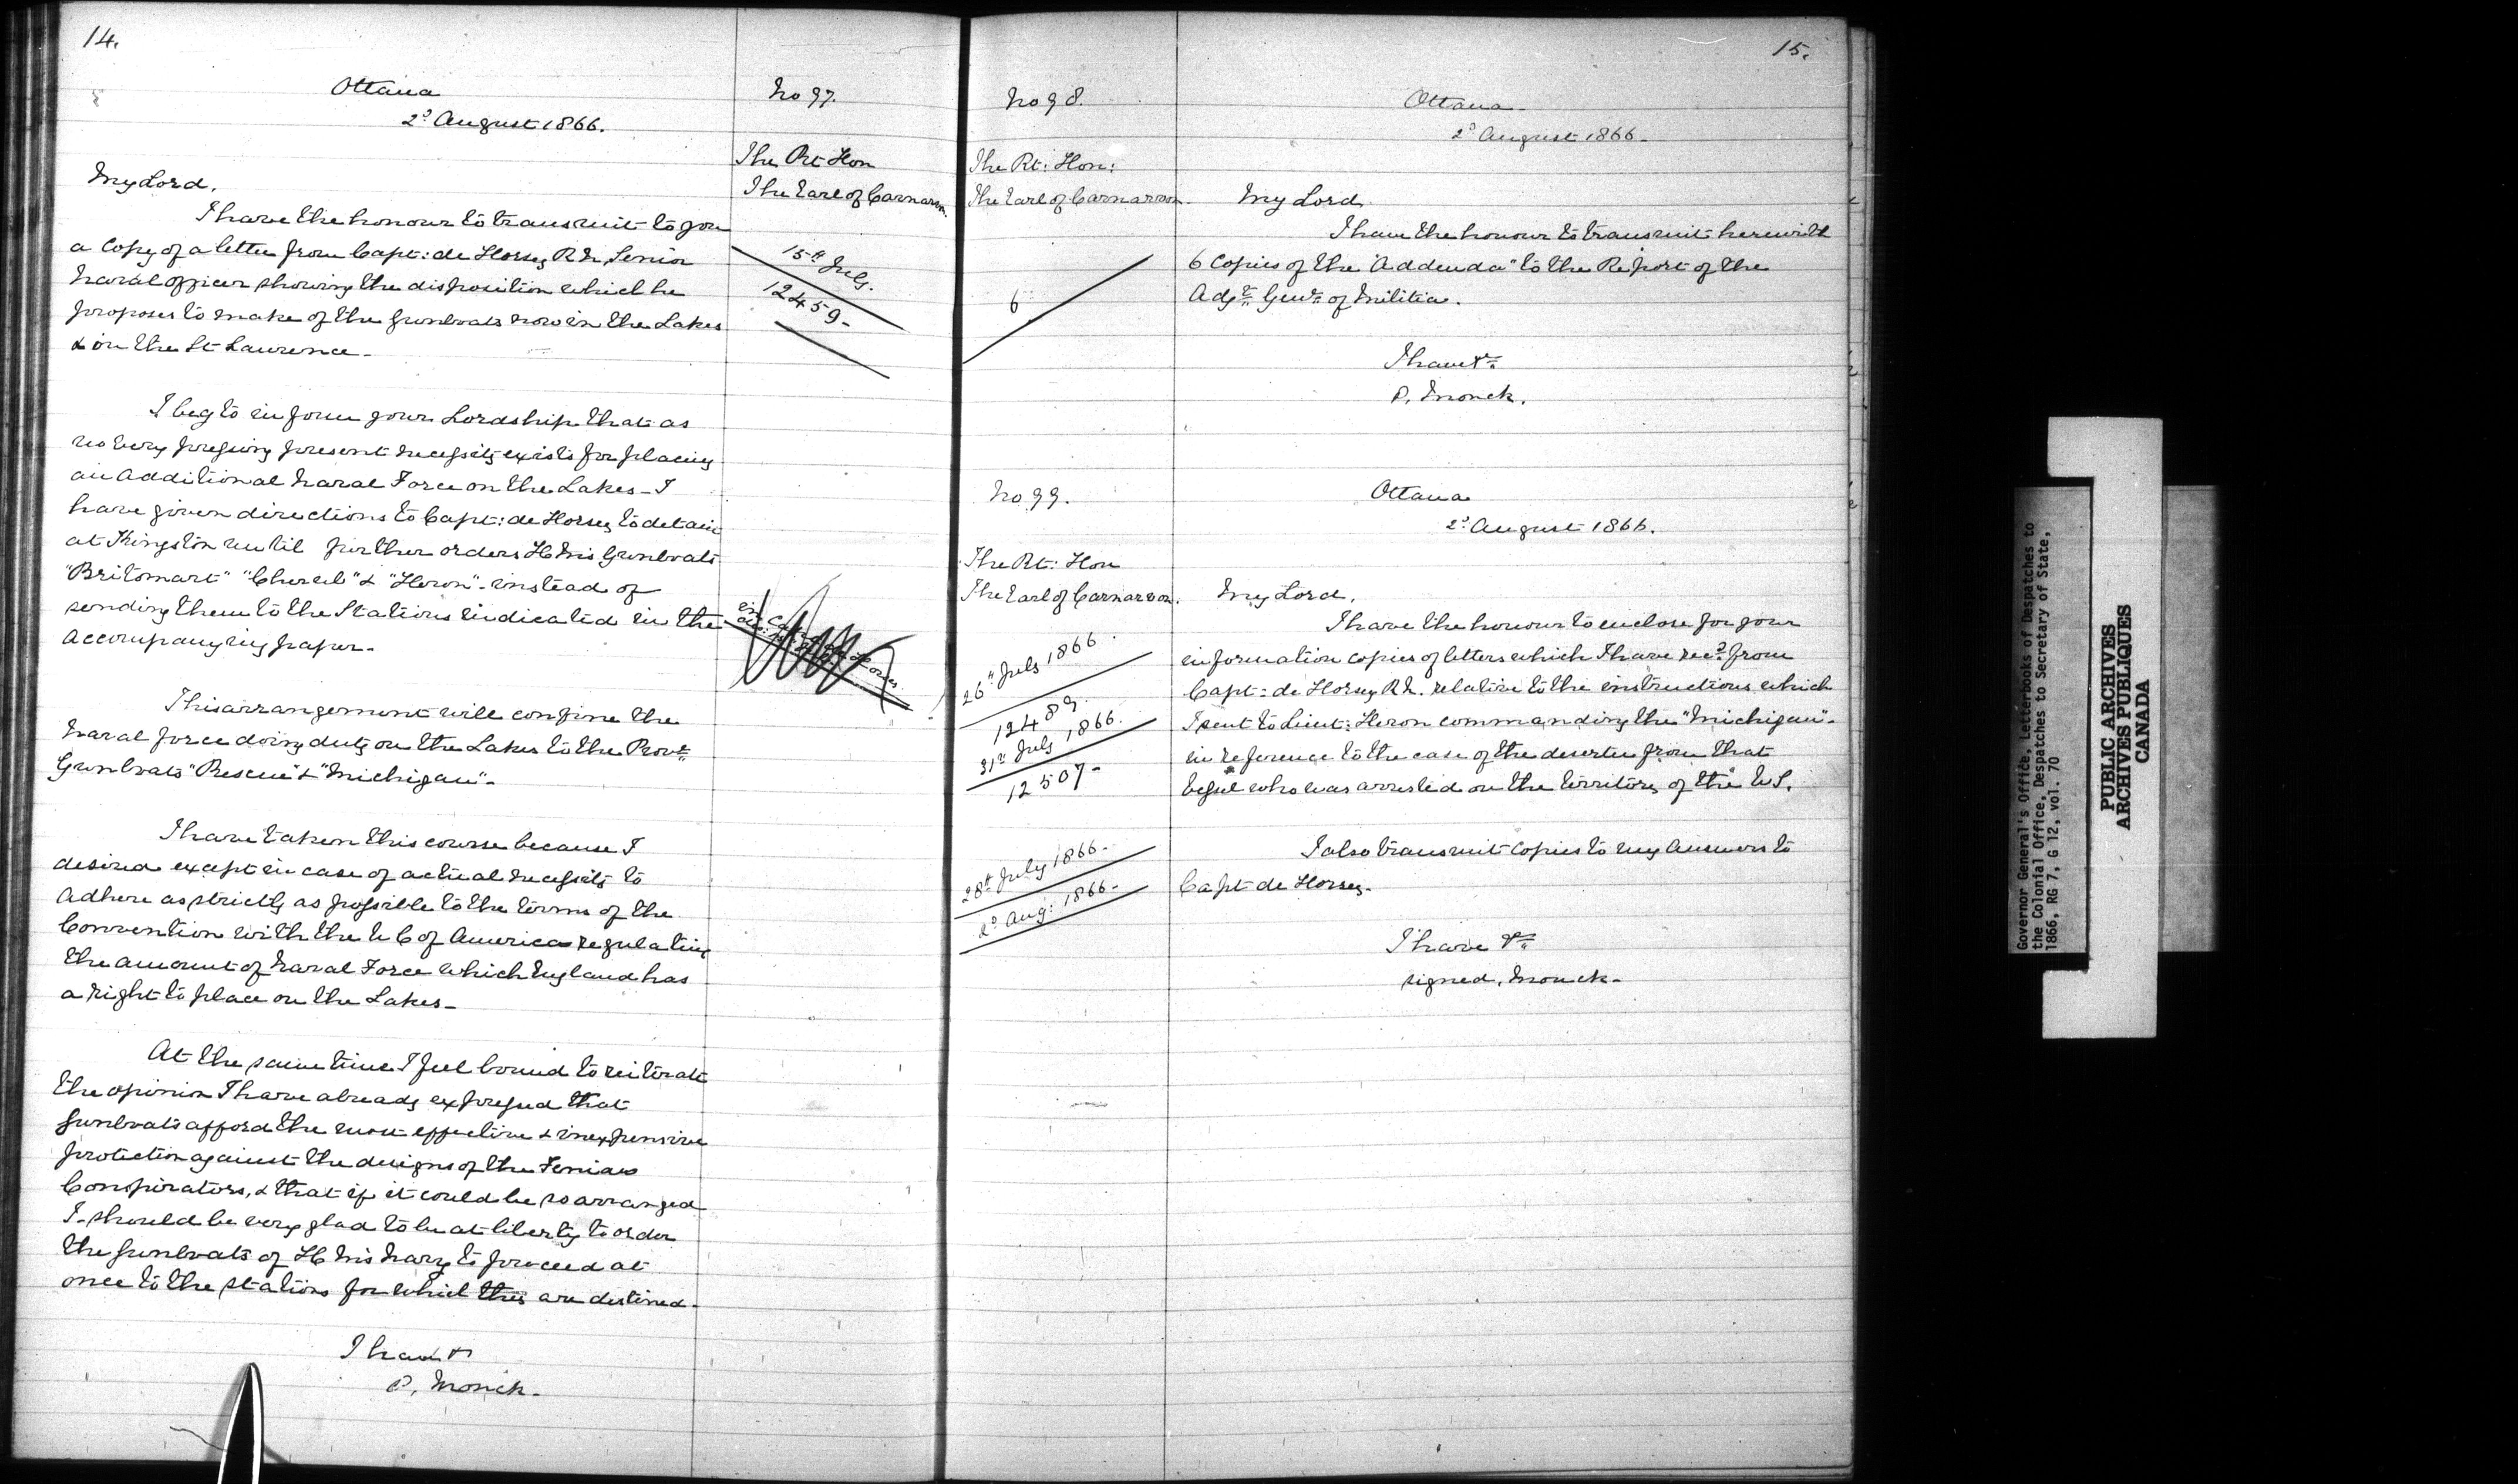 14.
Ottawa
2d August 1866.
No 97.
The Rt Hon
The Earl of Carnarvon
My Lord,
I have the honour to transmit to you
a Copy of a letter from Capt: de Horsey R.N. Senior
Naval Officer showing the disposition which he
proposes to make of the Gunboats now in the Lakes
& on the St Laurence -
15th July.
12459-
I beg to inform your Lordship that as
no very pressing present necessity exists for placing
an additional Naval Force on the Lakes - I
have given directions to Capt: de Horsey to detain
at Kingston until further orders H Ms Gunboats
"Britomart" "Cherub" & "Heron" - instead of
sending them to the Stations indicated in the
accompanying paper -
This arrangement will confine the
Naval force doing duty on the Lakes to the Provl
Gunboats "Rescue" & "Michigan" -
I have taken this course because I
desired except in case of actual necessity to
adhere as strictly as possible to the terms of the
Convention with the of America regulating
the amount of Naval Force which England has
a right to place on the Lakes -
At the same time I feel bound to reiterate
the opinion I have already expressed that
Gunboats afford the most effective & inexpensive
protection against the designs of the Fenian
Conspirators, & that if it could be so arranged
I should be very glad to be at liberty to order
the Gunboats of H Ms Navy to proceed at
once to the stations for which they are destined -
I have &
P. Monck -
15.
No 98.
Ottawa -
2d August 1866 -
The Rt: Hon:
The Earl of Carnarvon -
My Lord,
I have the honour to transmit herewith
6 Copies of the "Addenda" to the Report of the
Adjt Genl of Militia.
6
I have &c
P. Monck.
No 99.
Ottawa
2d August 1866.
The Rt: Hon
The Earl of Carnarvon.
My Lord,
I have the honour to enclose for your
information copies of letters which I have recd from
Capt: de Horsey R.N. relative to the instructions which
I sent to Lieut: Heron commanding the "Michigan" -
in reference to the case of the deserter from that
vessel who was arrested on the territory of the U.S.
26th July 1866.
12489.
31st July 1866.
12507-
I also transmit copies to my Answers to
Capt de Horsey -
28th July 1866-
2d Aug: 1866-
I have &c
signed, Monck -
Governor General's Office, Letterbooks of Despatches to
the Colonial Office, Despatches to Secretary of State,
1866, RG 7, G 12, vol. 70
PUBLIC ARCHIVES
ARCHIVES PUBLIQUES
CANADA